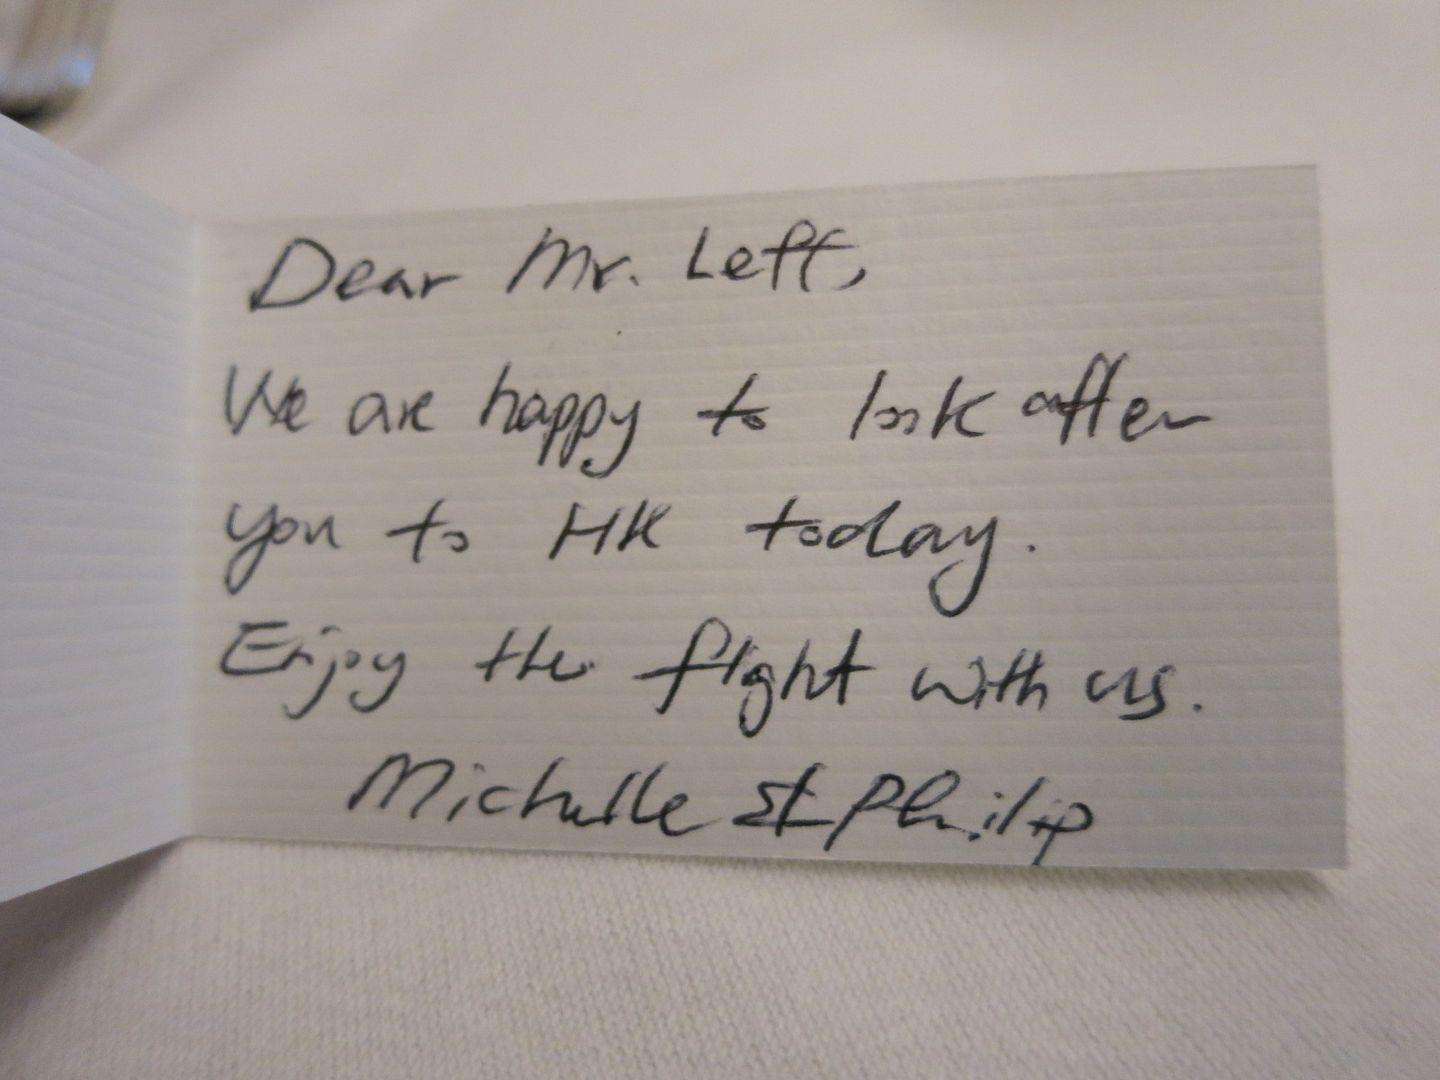 Dear Mr. Leff,
We are happy to look after
you to HK today.
Enjoy the flght with us.
Michelle & Philip